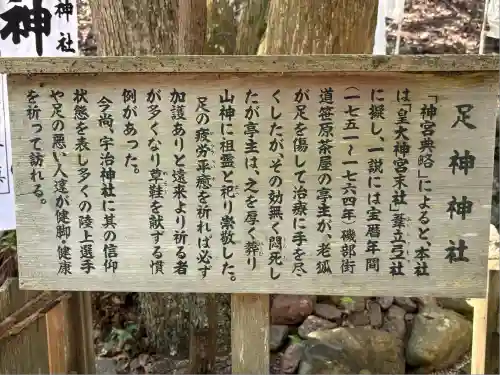 足神神社
「神宮典略」によると、本社
は「皇大神宮末社」葦立弖社
に擬し、一説には宝暦年間
（一七五一～一七六四年）磯部街
道笹原茶屋の亭主が、老狐
が足を傷して治療に手を尽
くしたが、その効無く悶死し
たが亭主は、之を厚く葬り
山神に祖霊と祀り崇敬した。
足の疲労平癒を祈れば必ず
加護ありと遠来より祈る者
が多くなり草鞋を献する慣
例があった。
今尚、宇治神社に其の信仰
状態を表し多くの陸上選手
や足の悪い人達が健脚・健康
を祈って訪れる。
神
神社